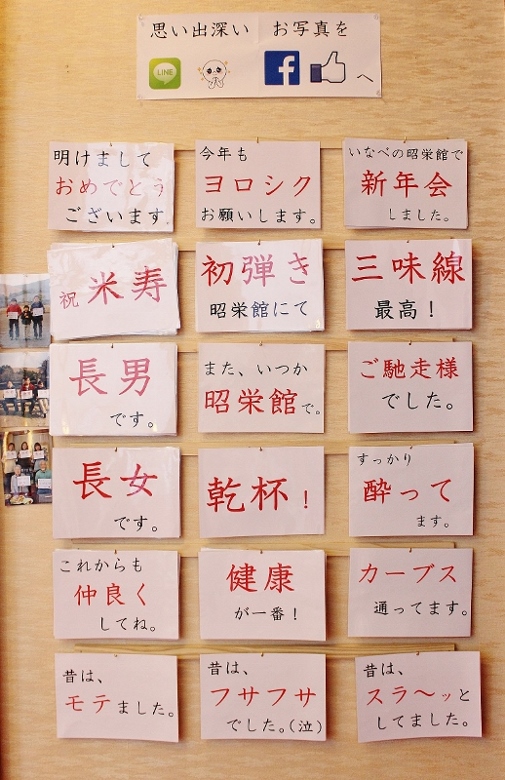 思い出深い お写真を
LINE
f
へ
明けまして
おめでとう
ございます。
今年も
ヨロシク
お願いします。
いなべの昭栄館で
新年会
しました。
祝 米寿
初弾き
昭栄館にて
三味線
最高！
長男
です。
また、いつか
昭栄館で。
ご馳走様
でした。
長女
です。
乾杯！
すっかり
酔って
ます。
これからも
仲良く
してね。
健康
が一番！
カーブス
通ってます。
昔は、
モテました。
昔は、
フサフサ
でした。（泣）
昔は、
スラ～ッと
してました。